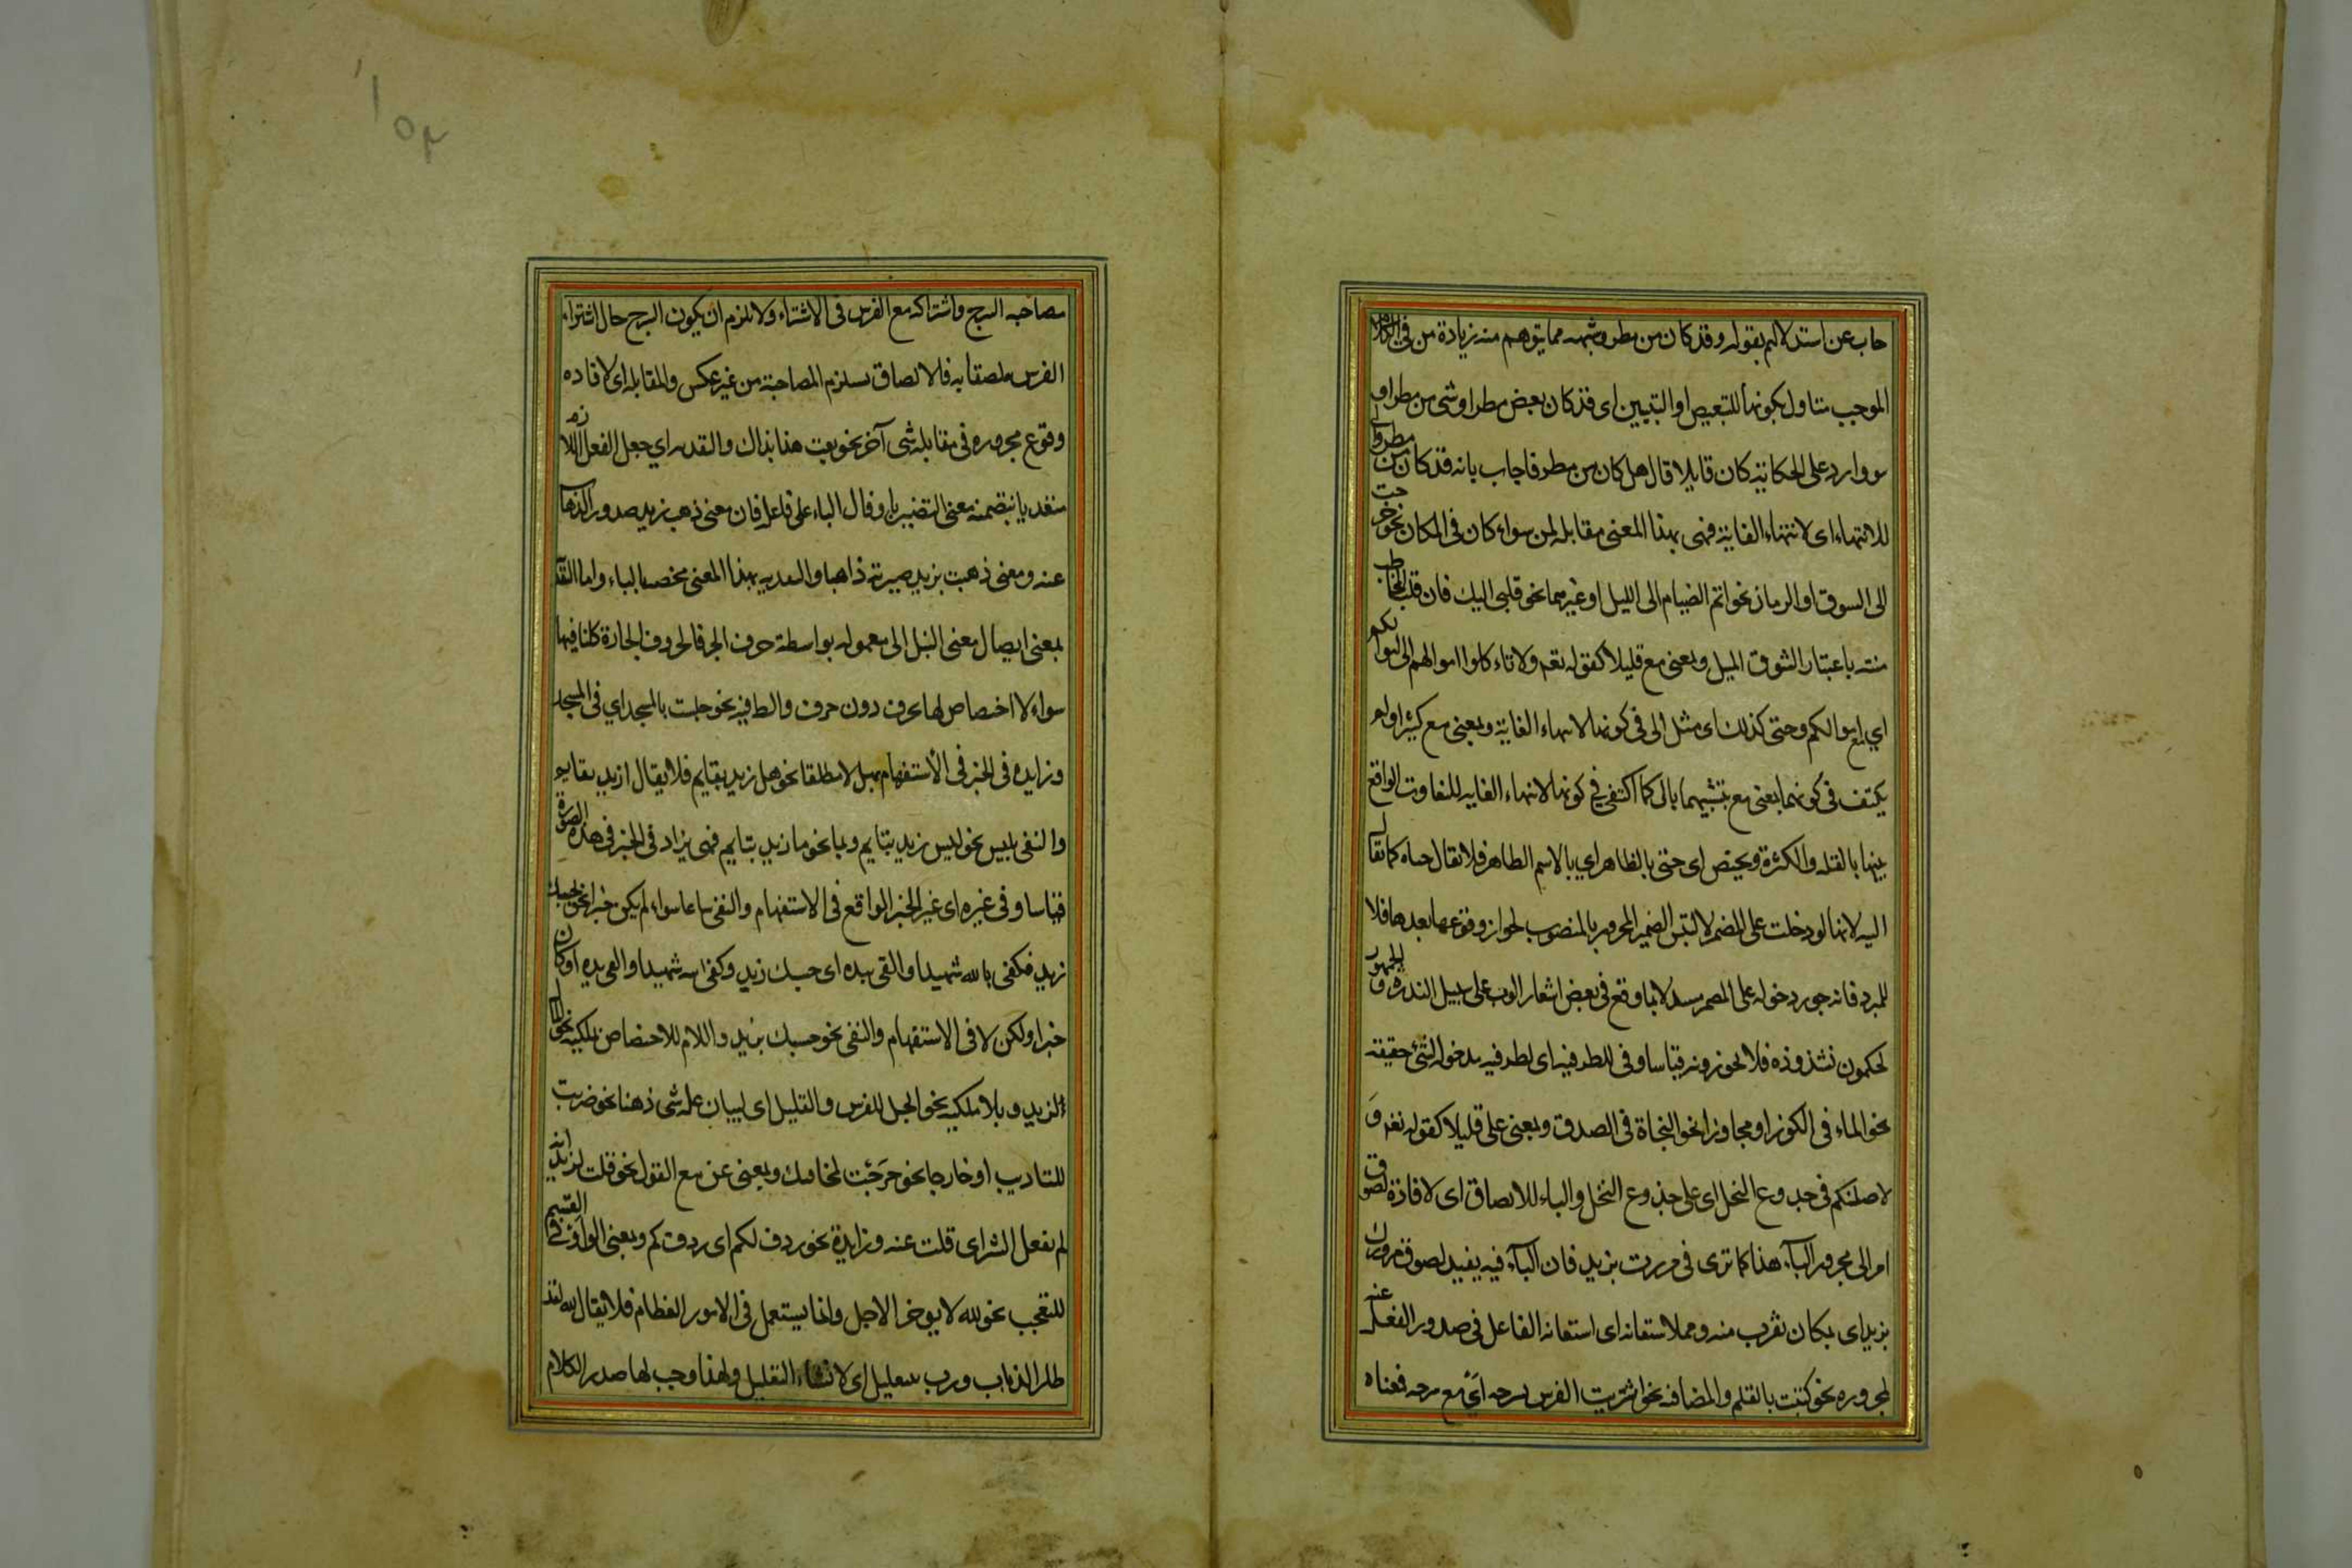 جاب عن استدلالهم بقوله وقد كان من مطر وشبهه مما يتوهم منه زيادة من فى الكلام
الموجب متاول بكونها للتبعيض او التبيين اى قد كان بعض مطر او شى من مطر او
هو وارد على الحكاية كان قايلا قال هل كان من مطر فاجاب بانه قد كان من مطر والى
للانتهاء اى لانتهاء الغاية فهى بهذا المعنى مقابلة لمن سواء كان فى المكان نحو خرجت
الى السوق او الزمان نحو اتم الصيام الى الليل او غيرهما نحو قلبى اليك فان قلب المخاطب
منته باعتبار الشوق الميل وبمعنى مع قليلا كقوله تعه ولا تاء كلوا اموالهم الى اموالكم
اي مع اموالكم وحتى كذلك اى مثل الى فى كونها لانهاء الغاية وبمعنى مع كثيرا ولم
يكتف فى كونهما بمعنى مع بتشبيهما بالى كما اكتفى فى كونها لانتهاء الغايه للتفاوت الواقع
بينها بالقله والكثرة ويختص اى حتى بالظاهر اي بالاسم الظاهر فلا يقال حتاه كما يقال
اليه لانها لو دخلت على المضمر لالتبس الضمير المجرور بالمنصوب لجواز وقوعهما بعدها خلافا
للمبرد فانه جوز دخوله على المضمر مستدلا بما وقع فى بعض اشعار العرب على سبيل الندرة والجمهور
يحكمون بشذوذه فلا يجوزونه قياسا وفى للظرفية اى لظرفيه مدخوله لشئ حقيقة
نحو الماء فى الكوز او مجازا نحو النجاة فى الصدق وبمعنى على قليلا كقوله تعه و
لاصلبنكم فى جدوع النخل اى على جذوع النخل والباء للالصاق اى لافاذة لصوق
امر الى مجرور البآء هذا كما ترى فى مررت بزيد فان البآء فيه يفيد لصوق مرورك
بزيد اى بمكان يقرب منه و الاستعانه اى استعانه الفاعل فى صدور الفعل عنه
بمجروره نحو كتبت بالقلم والمصاحبه نحو اشتريت الفرس بسرجه اي مع سرجه فمعناه
مصاحبه السرج واشتراكه مع الفرس فى الاشتراء ولا يلزم ان يكون السرج حال اشتراء
الفرس ملصقا به فلالصاق يستلزم المصاحبة من غير عكس والمقابله اى لافاده
وقوع مجروره فى مقابله شى آخر نحو بعت هذا بذاك والتعديه اي جعل الفعل اللازم
متعديا بتضمنه معنى التصيير بادخال الباء على فاعله فان معنى ذهب زيد صدور الذهاب
عنه ومعنى ذهبت بزيد صيرته ذاهبا والتعديه بهذا المعنى مختصه بالباء واما التعديه
بمعنى ايصال معنى الفعل الى معموله بواسطة حرف الجر فالحروف الجارة كلها فيها
سواء لا اختصاص لها بحرف دون حرف والظرفية نحو جلست بالمسجد اي فى المسجد
وزايده فى الخبر فى الأستفهام بهل لا مطلقا نحو هل زيد بقايم فلا يقال ازيد بقايم
والنفى بليس نحو ليس زيد بقايم وبما نحو ما زيد بقايم فهى يزاد فى الخبر فى هذه الصورة
قياسا وفى غيره اى غير الخبر الواقع فى الاستفهام والنفى سماعا سواء لم يكن خبرا نحو بحسبك
زيد وكفى بالله شهيدا والقى بيده اى حسبك زيد وكفى الله شهيدا والقى يده او كان
خبرا ولكن لا فى الاستفهام والنفى نحو حسبك بزيد واللام للاختصاص بملكيه نحو المال
لزيد وبلا ملكيه نحو الجل للفرس والتعليل اى لبيان عله شى ذهنا نحو ضربت
للتاديب او خارجا نحو خرجت لمخافتك وبمعنى عن مع القول نحو قلت لزيد انه
لم يفعل الشر اى قلت عنه وزايدة نحو ردف لكم اى ردفكم وبمعنى الواو فى القسم
للتعجب نحو لله لا يوخر الاجل وانما يستعمل فى الامور العظام فلا يقال لله لقد
طار الذباب ورب للتعليل اى لانشاء التقليل ولهذا وجب لها صدر الكلام